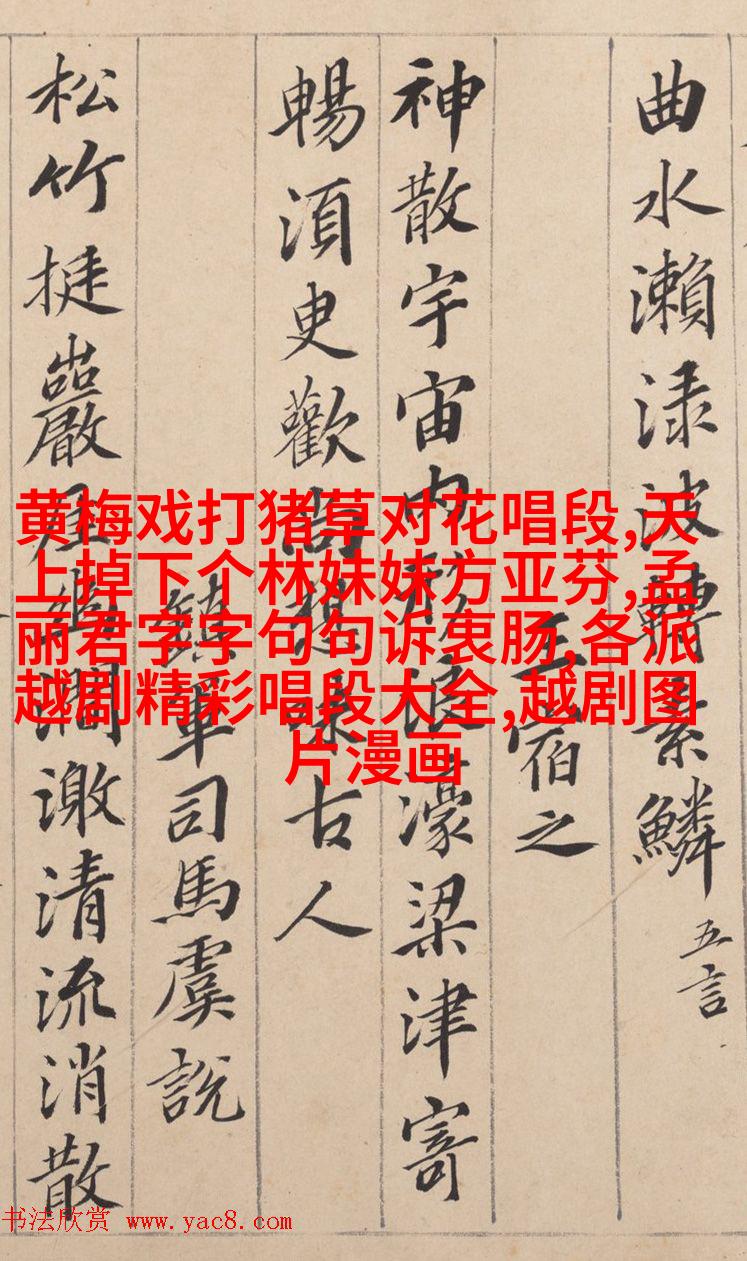 曲水瀨渌波轉素鱗 五言
王宿之
神散宇宙內形浪濠梁津寄
暢須臾歡尚想味古人
鎮軍司馬虞說
松竹挺巖崖幽澗激清流消散
黄梅戏打猪草对花唱段,天
上掉下个林妹妹方亚芬,孟
丽君字字句句诉衷肠,各派
越剧精彩唱段大全,越剧图
片漫画
书法欣赏 www.yac8.com